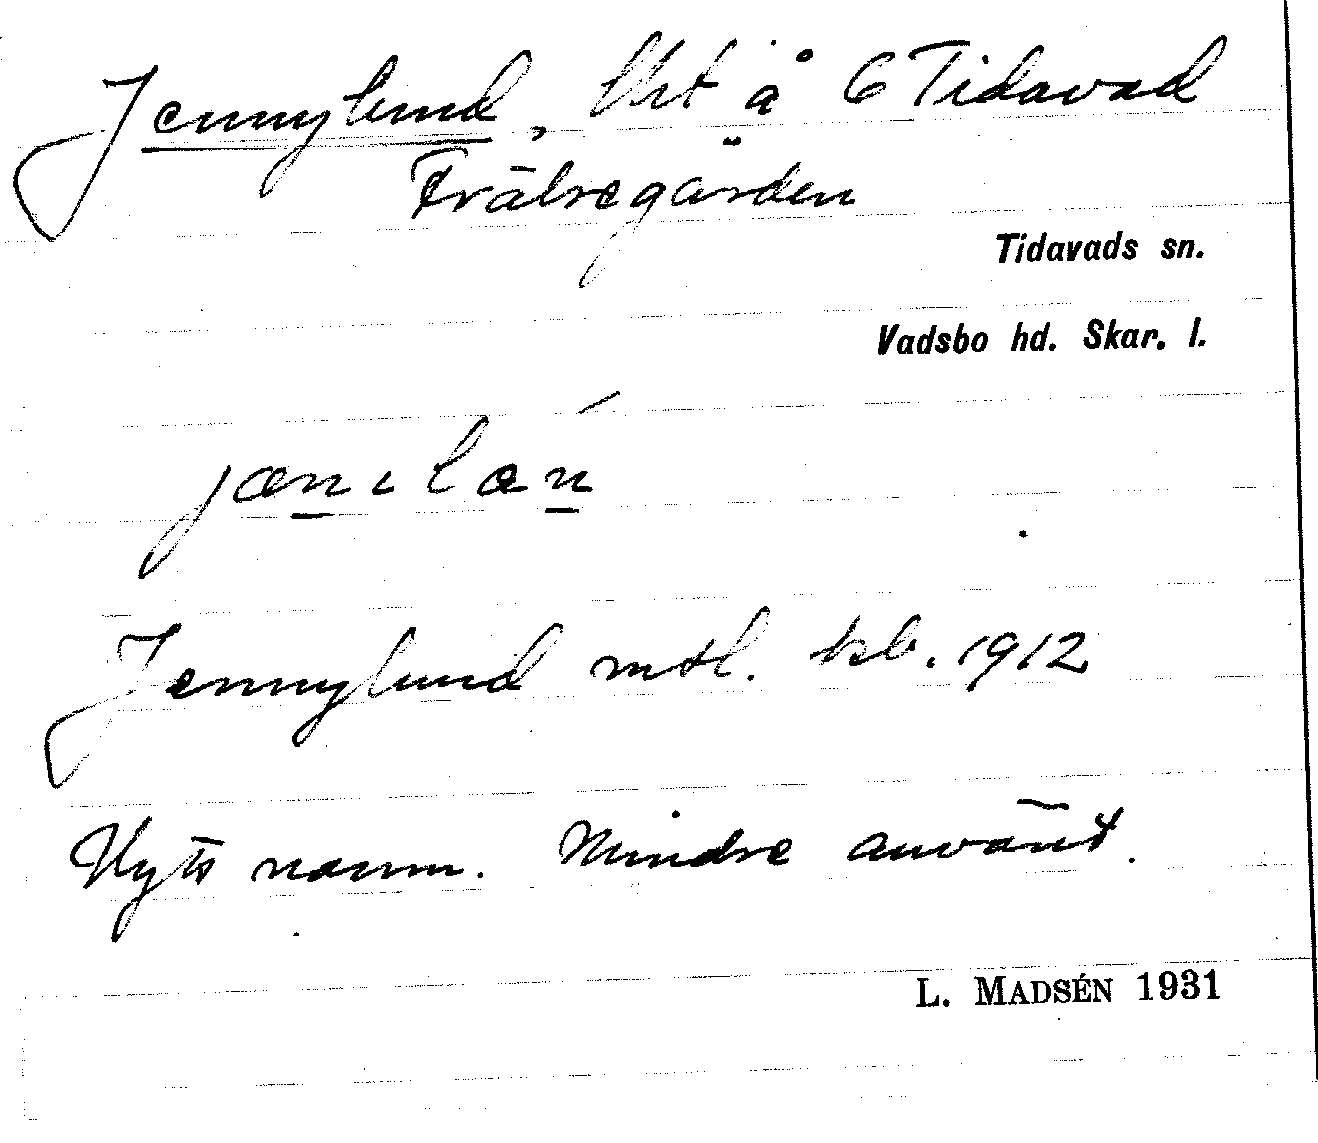 Jennylund, lht å 6 Tidavad
Frälsegården
Tidavads sn.
Vadsbo hd. Skar. l.
Jennylund mtl. kb. 1912
Nytt namn. Mindre använt.
L. MADSÉN 1931